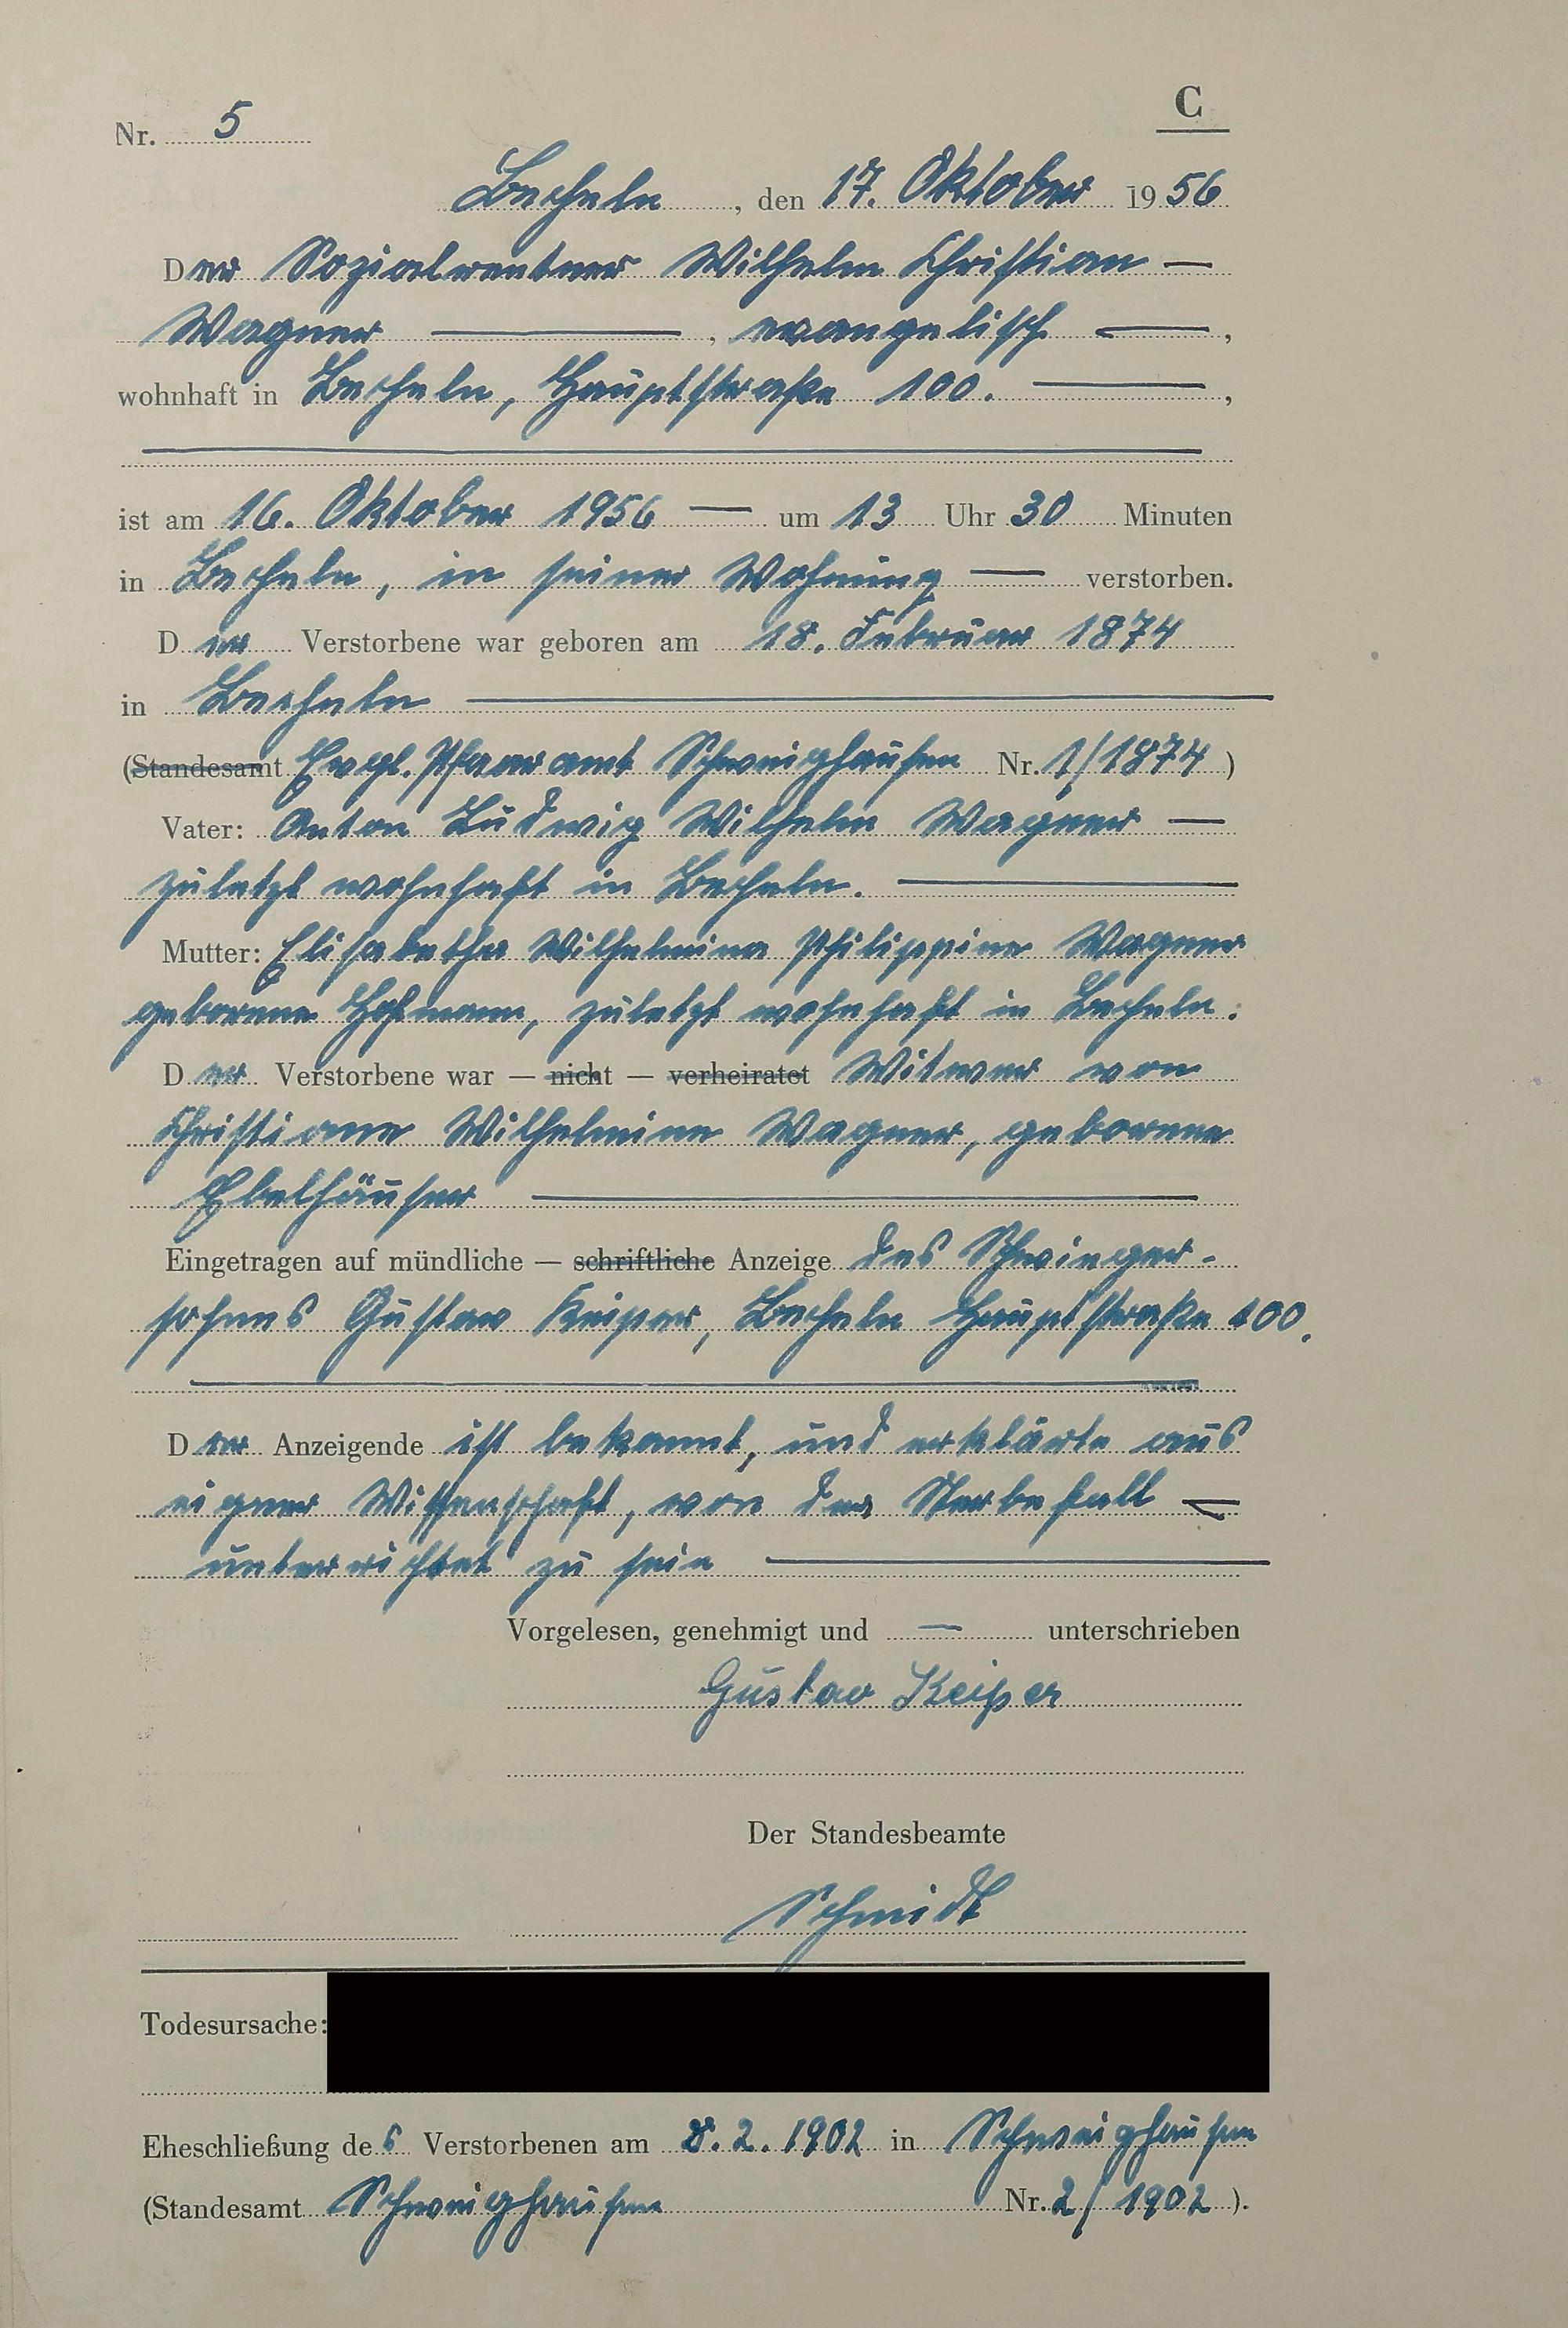 C
Nr. 5
Becheln, den 17. Oktober 1956
Der Sozialrentner Wilhelm Christian —
Wagner —, evangelisch —,
wohnhaft in Becheln, Hauptstraße 100. —,
ist am 16. Oktober 1956 — um 13 Uhr 30 Minuten
in Becheln, in seiner Wohnung — verstorben.
Der Verstorbene war geboren am 18. Februar 1874
in Becheln —
(Standesamt Evgl. Pfarramt Schweighausen Nr. 1/1874)
Vater: Anton Ludwig Wilhelm Wagner —
zuletzt wohnhaft in Becheln. —
Mutter: Elisabetha Wilhelmina Philippine Wagner
geborene Hofmann, zuletzt wohnhaft in Becheln.
Der Verstorbene war — nicht — verheiratet Witwer von
Christiane Wilhelmine Wagner, geborene
Ebelhäuser —
Eingetragen auf mündliche — schriftliche Anzeige des Schwieger-
sohnes Gustav Keiper, Becheln Hauptstraße 100.
Der Anzeigende ist bekannt, und erklärte aus
eigner Wissenschaft, von der Sterbefall —
unterrichtet zu sein —
Vorgelesen, genehmigt und — unterschrieben
Gustav Keiper
Der Standesbeamte
Schmidt
Todesursache:
Eheschließung des Verstorbenen am 8.2.1902 in Schweighausen
(Standesamt Schweighausen Nr. 2/1902).